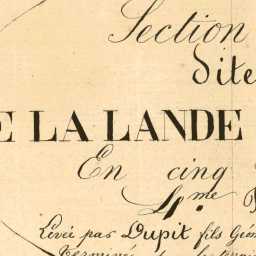 Section
dite
E LA LANDE
En cinq
4.me
Levée par Dupit fils Géom
Terminée